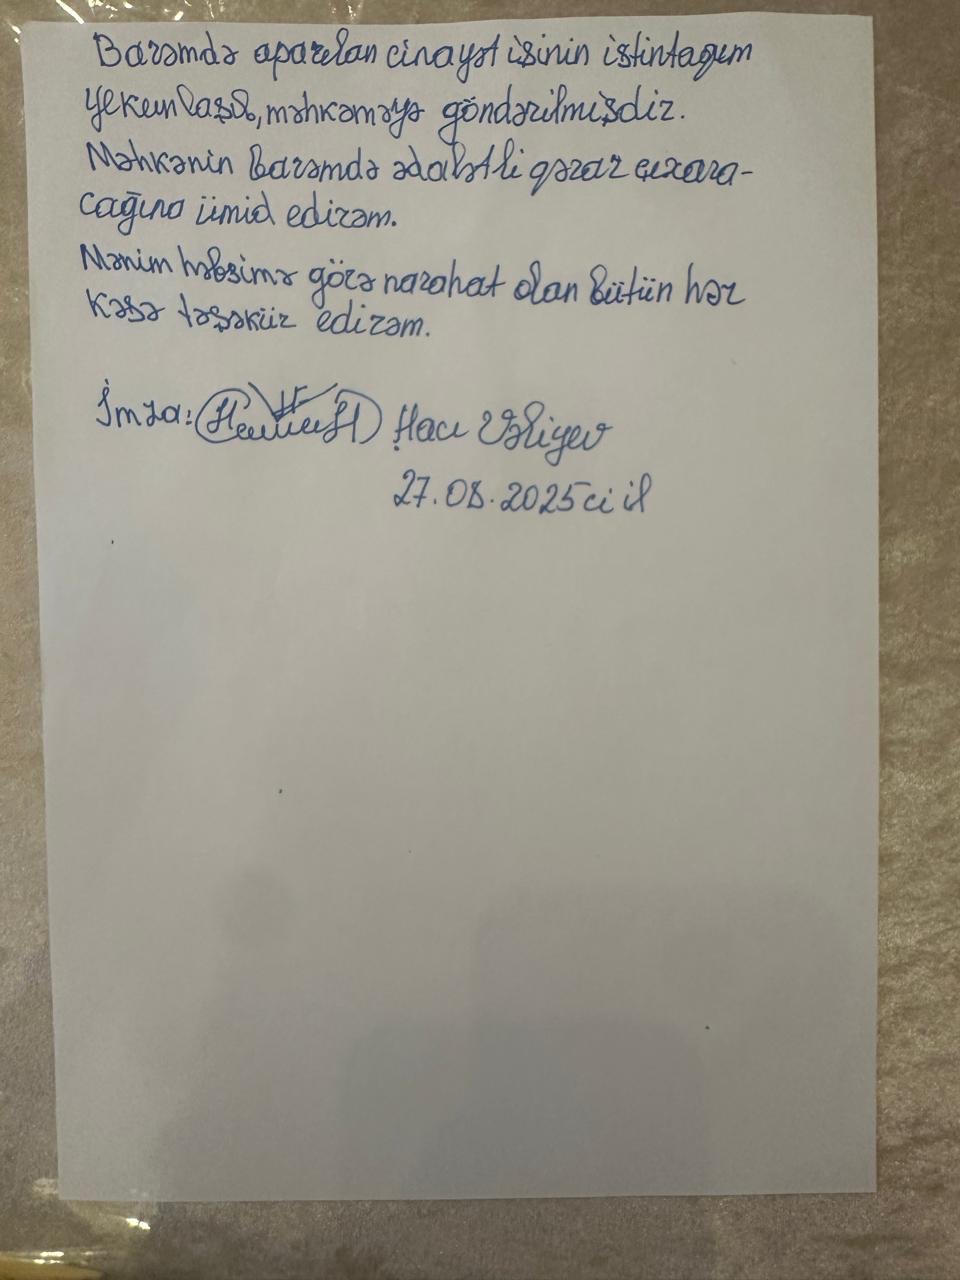 Barəmdə aparılan cinayət işinin istintaqım
yekunlaşıb, məhkəməyə göndərilmişdir.
Məhkənin barəmdə ədalətli qərar çıxara-
cağına ümid edirəm.
Mənim həbsimə görə narahat olan bütün hər
kəsə təşəkür edirəm.
İmza: Hacı Vəliyev
27.08.2025 ci il